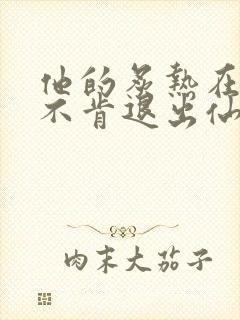 他的炙热在
不肯退出仙
肉末大茄子